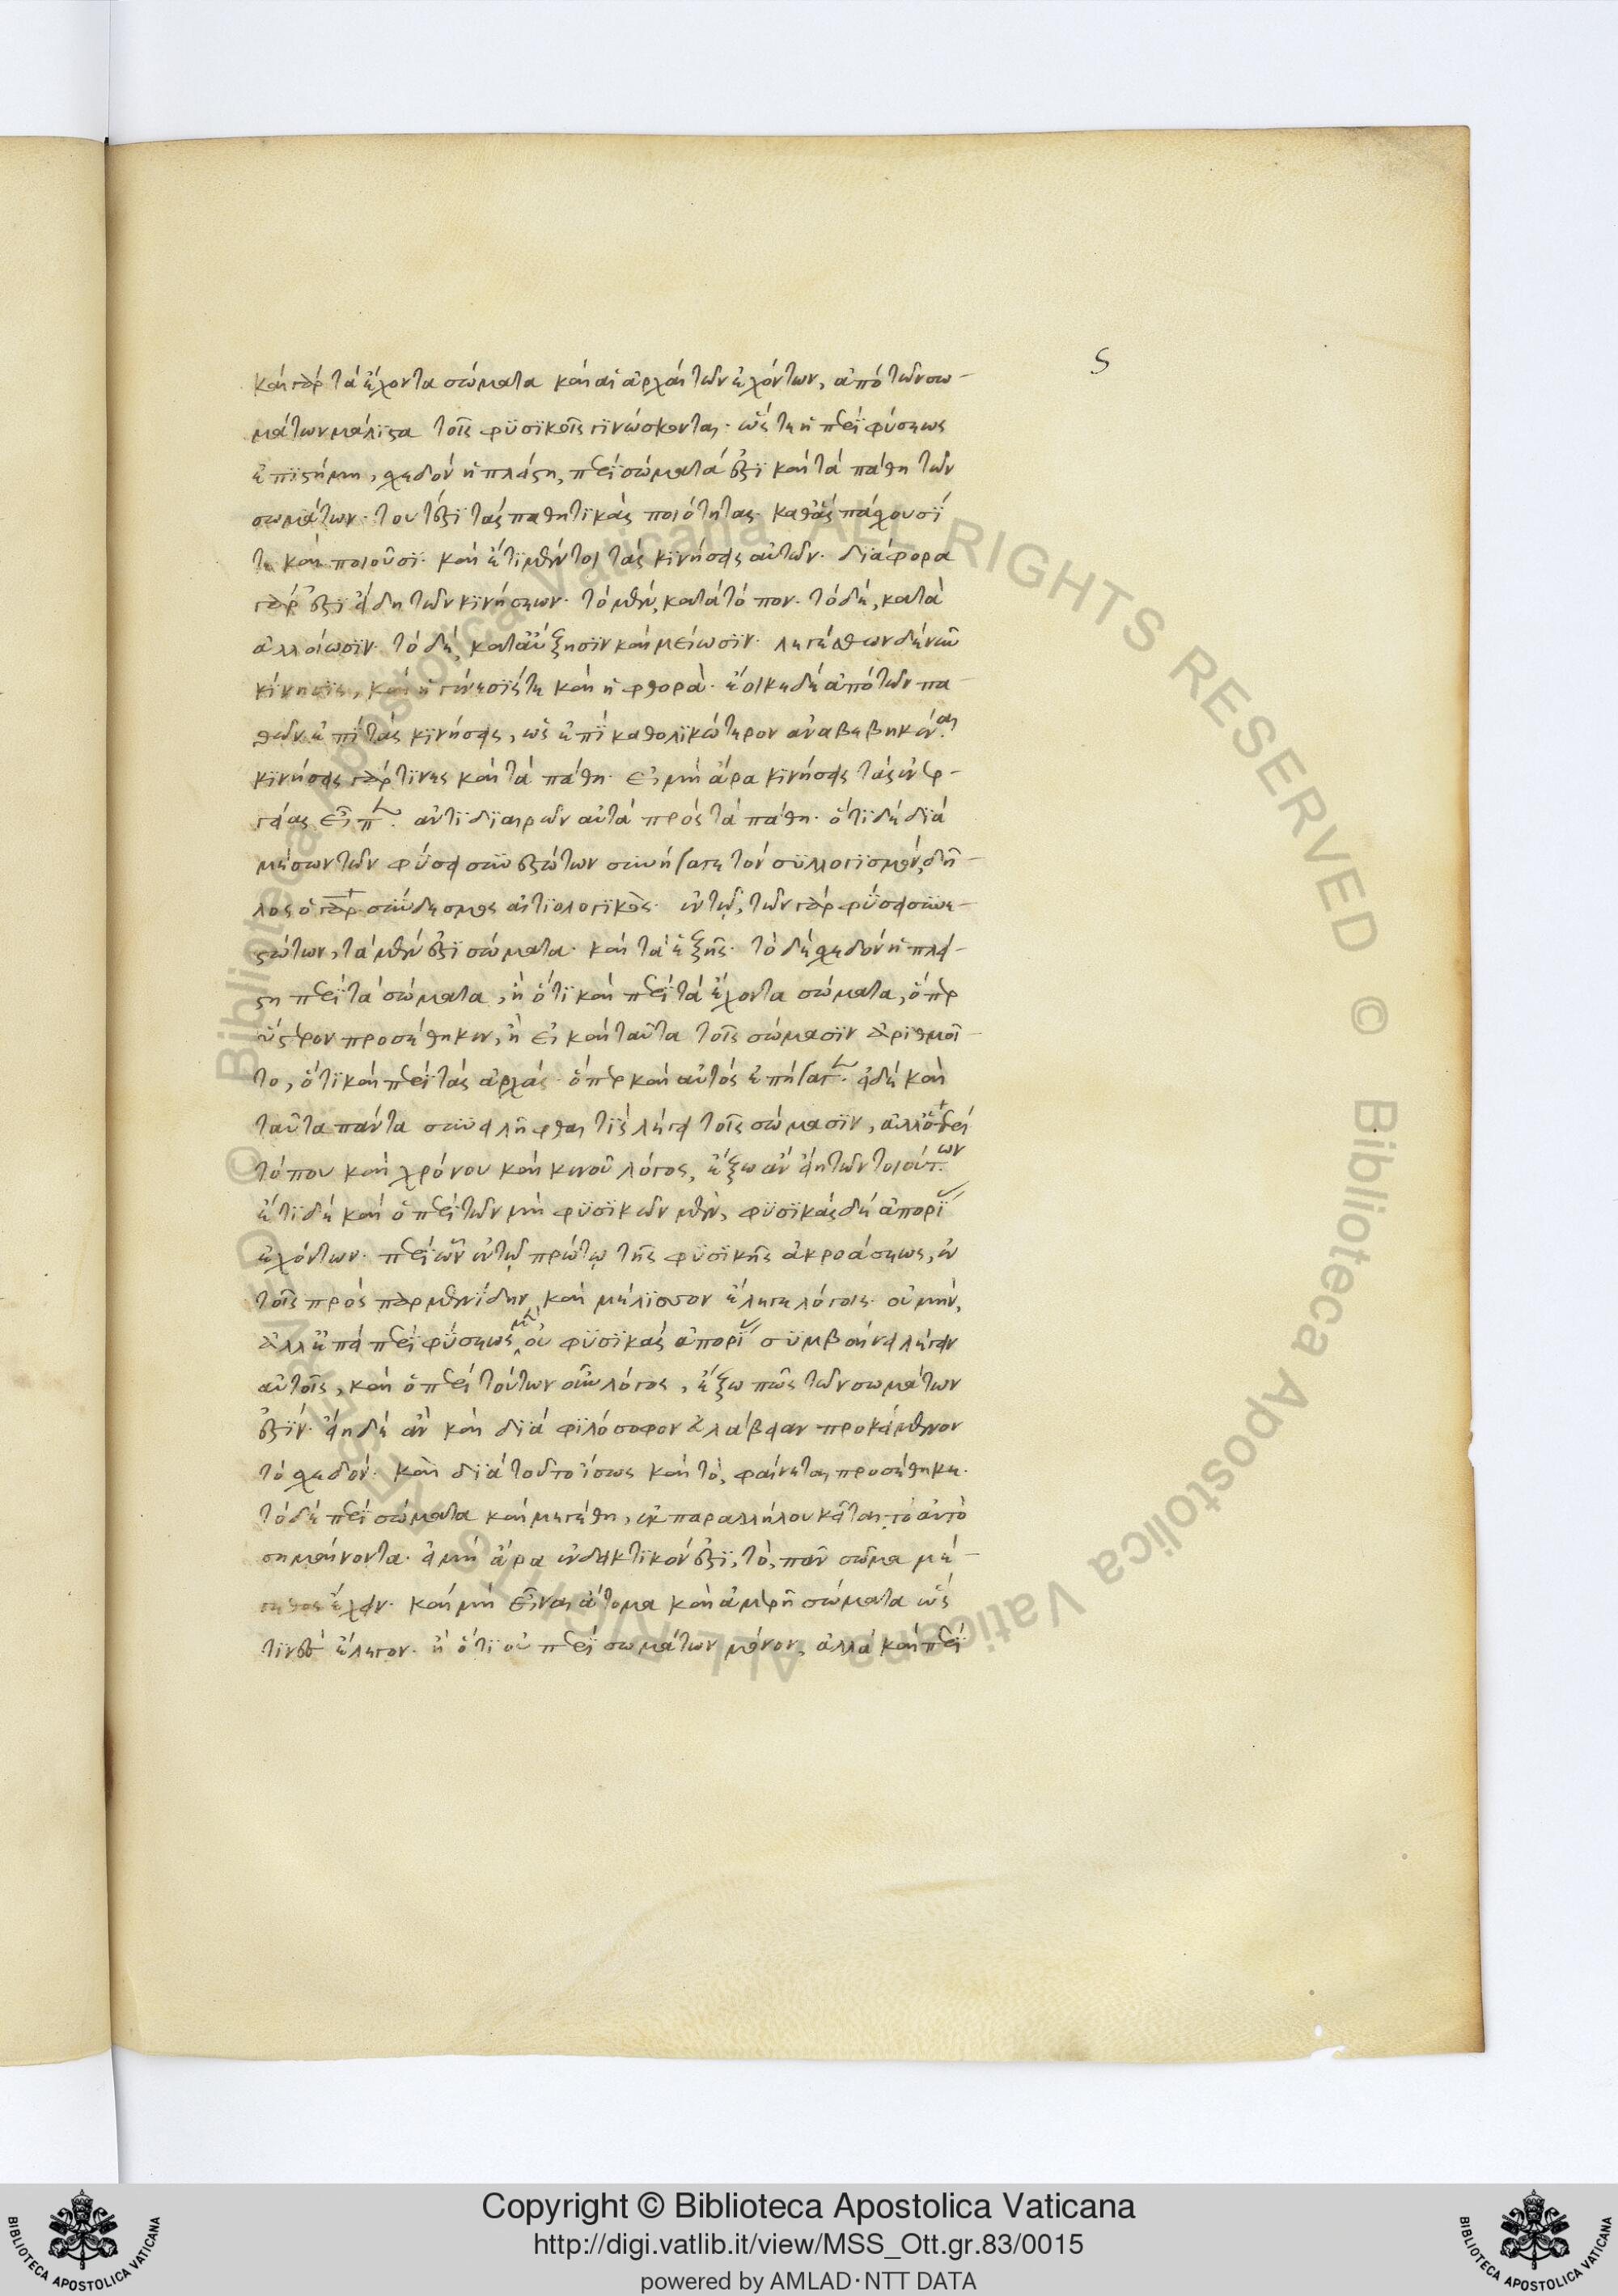 ς
καὶ γὰρ τὰ ἔχοντα σώματα καὶ αἱ ἀρχαὶ τῶν ἐχόντων, ἀπὸ τῶν σω-
μάτων μάλιστα τοῖς φυσικοῖς γινώσκονται. ὥστε ἡ περὶ φύσεως
ἐπιστήμη, σχεδὸν ἡ πλείστη, περὶ σώματά ἐστι καὶ τὰ πάθη τῶν
σωμάτων. τουτέστι τὰς παθητικὰς ποιότητας. καθ' ἃς πάσχουσί
τε καὶ ποιοῦσι. καὶ ἔτι μέντοι τὰς κινήσεις αὐτῶν. διάφορα
γάρ ἐστι εἴδη τῶν κινήσεων. τὸ μὲν, κατὰ τόπον. τὸ δὲ, κατὰ
ἀλλοίωσιν. τὸ δὲ, κατ' αὔξησιν καὶ μείωσιν. λεγέσθων δὲ νῦν
κίνησις, καὶ ἡ γένεσίς τε καὶ ἡ φθορά. ἔοικε δὲ ἀπὸ τῶν πα-
θῶν ἐπὶ τὰς κινήσεις, ὡς ἐπὶ καθολικώτερον ἀναβεβηκέναι.
κινήσεις γάρ τινες καὶ τὰ πάθη. εἰ μὴ ἄρα κινήσεις τὰς ἐνερ-
γείας εἶπ. ἀντιδιαιρῶν αὐτὰ πρὸς τὰ πάθη. ὅτι δὲ διὰ
μέσων τῶν φύσει συνεστώτων συνήγαγε τὸν συλλογισμὸν, δῆ-
λος ὁ γὰρ σύνδεσμος αἰτιολογικὸς. ἐν τῷ, τῶν γὰρ φύσει συνε-
στώτων, τὰ μέν ἐστι σώματα. καὶ τὰ ἑξῆς. τὸ δὲ σχεδὸν ἡ πλεί-
στη περὶ τὰ σώματα, ἢ ὅτι καὶ περὶ τὰ ἔχοντα σώματα, ὅπερ
ὕστερον προσέθηκεν, ἢ εἰ καὶ ταῦτα τοῖς σώμασιν ἀριθμοῖ
το, ὅτι καὶ περὶ τὰς ἀρχάς. ὅπερ καὶ αὐτὸς ἐπήγαγ. εἰ δὲ καὶ
ταῦτα πάντα συνειλῆφθαι τὶς λέγει τοῖς σώμασιν, ἀλλ' ὁ περὶ
τόπου καὶ χρόνου καὶ κενοῦ λόγος, ἔξω ἂν εἴη τῶν τοιούτων
ἔτι δὲ καὶ ὁ περὶ τῶν μὴ φυσικῶν μὲν, φυσικὰς δὲ ἀπορί
ἐχόντων. περὶ ὧν ἐν τῷ πρώτῳ τῆς φυσικῆς ἀκροάσεως, ἐν
τοῖς πρὸς παρμενίδην καὶ μέλισσον ἔλεγε λόγοις. οὐ μὴν,
ἀλλ' ἐπεὶ περὶ φύσεως μὲν οὐ φυσικὰς ἀπορί συμβαίνει λέγειν
αὐτοῖς, καὶ ὁ περὶ τούτων οὖν λόγος, ἔξω πως τῶν σωμάτων
ἐστίν. εἴη δὲ ἂν καὶ διὰ φιλόσοφον εὐλάβειαν προκείμενον
τὸ σχεδόν. καὶ διὰ τοῦτο ἴσως καὶ τὸ, φαίνεται προσέθηκε.
τὸ δὲ περὶ σώματα καὶ μεγέθη, ἐκ παραλλήλου κεῖται, τὸ αὐτὸ
σημαίνοντα. εἰ μὴ ἄρα ἐνδεικτικόν ἐστι, τὸ, πᾶν σῶμα μέ-
γεθος ἔχειν. καὶ μὴ εἶναι ἄτομα καὶ ἀμερῆ σώματα ὥς
τινες ἔλεγον. ἢ ὅτι οὐ περὶ σωμάτων μόνον, ἀλλὰ καὶ περὶ
© Biblioteca Apostolica Vaticana ALL RIGHTS RESERVED
Copyright © Biblioteca Apostolica Vaticana
http://digi.vatlib.it/view/MSS_Ott.gr.83/0015
powered by AMLAD·NTT DATA
BIBLIOTECA APOSTOLICA VATICANA
BIBLIOTECA APOSTOLICA VATICANA